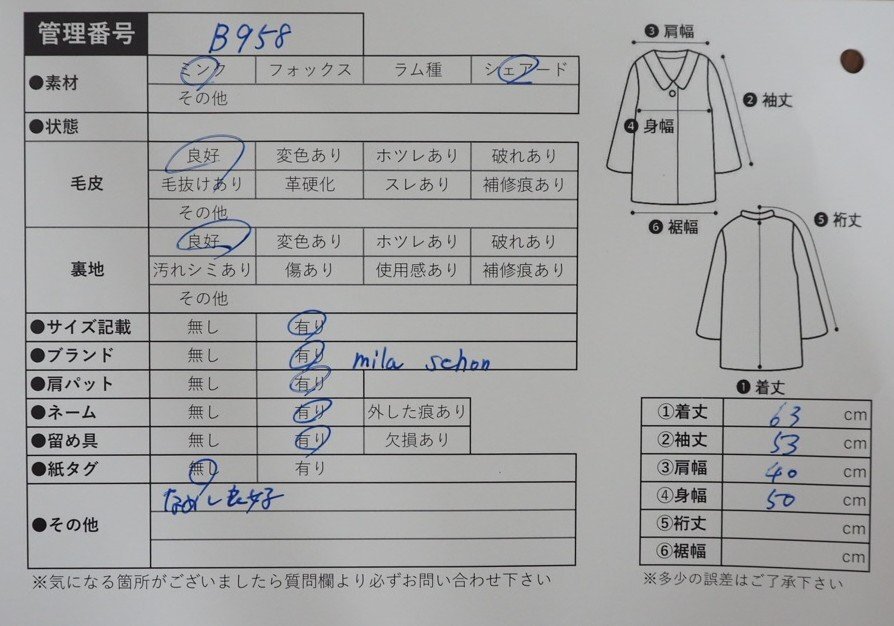 管理番号 B958
●素材 ミンク フォックス ラム種 シェアード
その他
●状態
毛皮 良好 変色あり ホツレあり 破れあり
毛抜けあり 革硬化 スレあり 補修痕あり
その他
裏地 良好 変色あり ホツレあり 破れあり
汚れシミあり 傷あり 使用感あり 補修痕あり
その他
●サイズ記載 無し 有り
●ブランド 無し 有り mila schon
●肩パット 無し 有り
●ネーム 無し 有り 外した痕あり
●留め具 無し 有り 欠損あり
●紙タグ 無し 有り
●その他 なめし良好
※気になる箇所がございましたら質問欄より必ずお問い合わせ下さい
❸肩幅
❷袖丈
❹身幅
❻裾幅
❺裄丈
❶着丈
①着丈 63 cm
②袖丈 53 cm
③肩幅 40 cm
④身幅 50 cm
⑤裄丈 cm
⑥裾幅 cm
※多少の誤差はご了承下さい